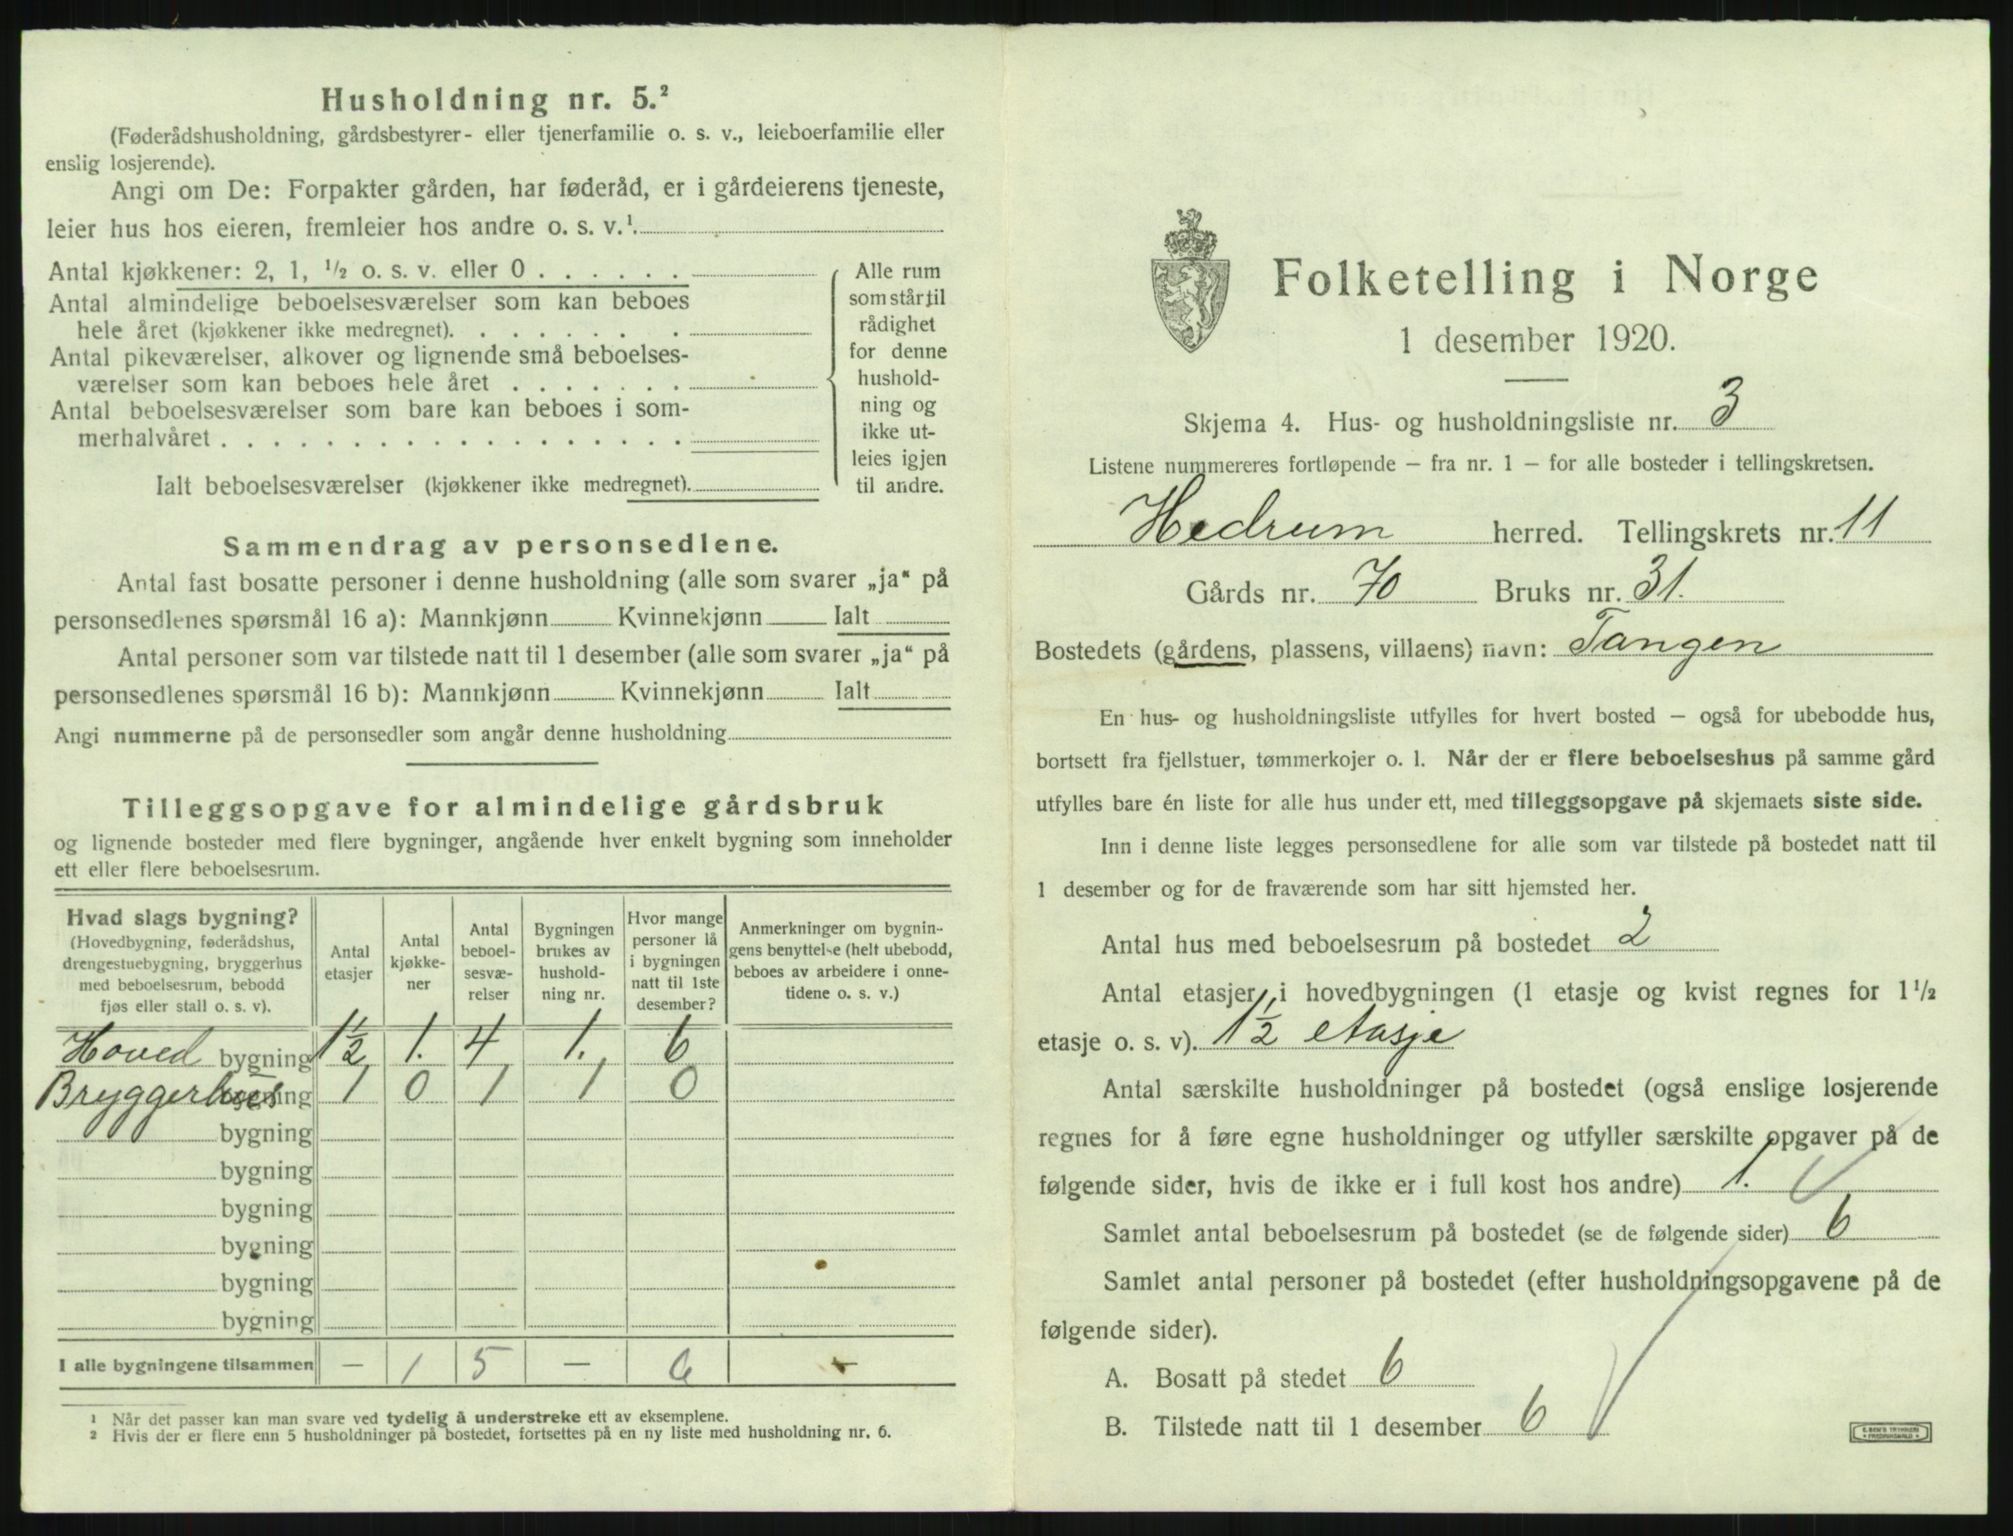 Husholdning nr. 5.²
(Føderådshusholdning, gårdsbestyrer- eller tjenerfamilie o. s. v., leieboerfamilie eller
enslig losjerende).
Angi om De: Forpakter gården, har føderåd, er i gårdeierens tjeneste,
leier hus hos eieren, fremleier hos andre o. s. v.¹.
Antal kjøkkener: 2, 1, ½ o. s. v. eller 0 . . . . . .
Antal almindelige beboelsesværelser som kan beboes
hele året (kjøkkener ikke medregnet). . . . . . . .
Antal pikeværelser, alkover og lignende små beboelses-
værelser som kan beboes hele året . . . . . . .
Antal beboelsesværelser som bare kan beboes i som-
merhalvåret . . . . . . . . . . . . . . . . . .
Ialt beboelsesværelser (kjøkkener ikke medregnet).
Alle rum
som står til
rådighet
for denne
hushold-
ning og
ikke ut-
leies igjen
til andre.
Sammendrag av personsedlene.
Antal fast bosatte personer i denne husholdning (alle som svarer „ja“ på
personsedlenes spørsmål 16 a): Mannkjønn Kvinnekjønn Ialt
Antal personer som var tilstede natt til 1 desember (alle som svarer „ja“ på
personsedlenes spørsmål 16 b): Mannkjønn Kvinnekjønn Ialt
Angi nummerne på de personsedler som angår denne husholdning
Tilleggsopgave for almindelige gårdsbruk
og lignende bosteder med flere bygninger, angående hver enkelt bygning som inneholder
ett eller flere beboelsesrum.
Hvad slags bygning?
(Hovedbygning, føderådshus,
drengestuebygning, bryggerhus
med beboelsesrum, bebodd
fjøs eller stall o. s. v).
Antal
etasjer
Antal
kjøkke-
ner
Antal
beboel-
sesvæ-
relser
Bygningen
brukes av
hushold-
ning nr.
Hvor mange
personer lå
i bygningen
natt til 1ste
desember?
Anmerkninger om bygnin-
gens benyttelse (helt ubebodd,
beboes av arbeidere i onne-
tidene o. s. v.)
Hoved bygning 1½ 1. 4 1. 6
Bryggerhus bygning 1 0 1 1 0
bygning
bygning
bygning
bygning
bygning
bygning
I alle bygningene tilsammen — 1 5 — 6 —
¹ Når det passer kan man svare ved tydelig å understreke ett av eksemplene.
² Hvis der er flere enn 5 husholdninger på bostedet, fortsettes på en ny liste med husholdning nr. 6.
Folketelling i Norge
1 desember 1920.
Skjema 4. Hus- og husholdningsliste nr. 3
Listene nummereres fortløpende – fra nr. 1 – for alle bosteder i tellingskretsen.
Hedrum herred. Tellingskrets nr. 11
Gårds nr. 70 Bruks nr. 31.
Bostedets (gårdens, plassens, villaens) navn: Tangen
En hus- og husholdningsliste utfylles for hvert bosted – også for ubebodde hus,
bortsett fra fjellstuer, tømmerkojer o. l. Når der er flere beboelseshus på samme gård
utfylles bare én liste for alle hus under ett, med tilleggsopgave på skjemaets siste side.
Inn i denne liste legges personsedlene for alle som var tilstede på bostedet natt til
1 desember og for de fraværende som har sitt hjemsted her.
Antal hus med beboelsesrum på bostedet 2
Antal etasjer i hovedbygningen (1 etasje og kvist regnes for 1½
etasje o. s. v). 1½ etasje
Antal særskilte husholdninger på bostedet (også enslige losjerende
regnes for å føre egne husholdninger og utfyller særskilte opgaver på de
følgende sider, hvis de ikke er i full kost hos andre) 1.
Samlet antal beboelsesrum på bostedet (se de følgende sider) 6
Samlet antal personer på bostedet (efter husholdningsopgavene på de
følgende sider).
A. Bosatt på stedet 6
B. Tilstede natt til 1 desember 6